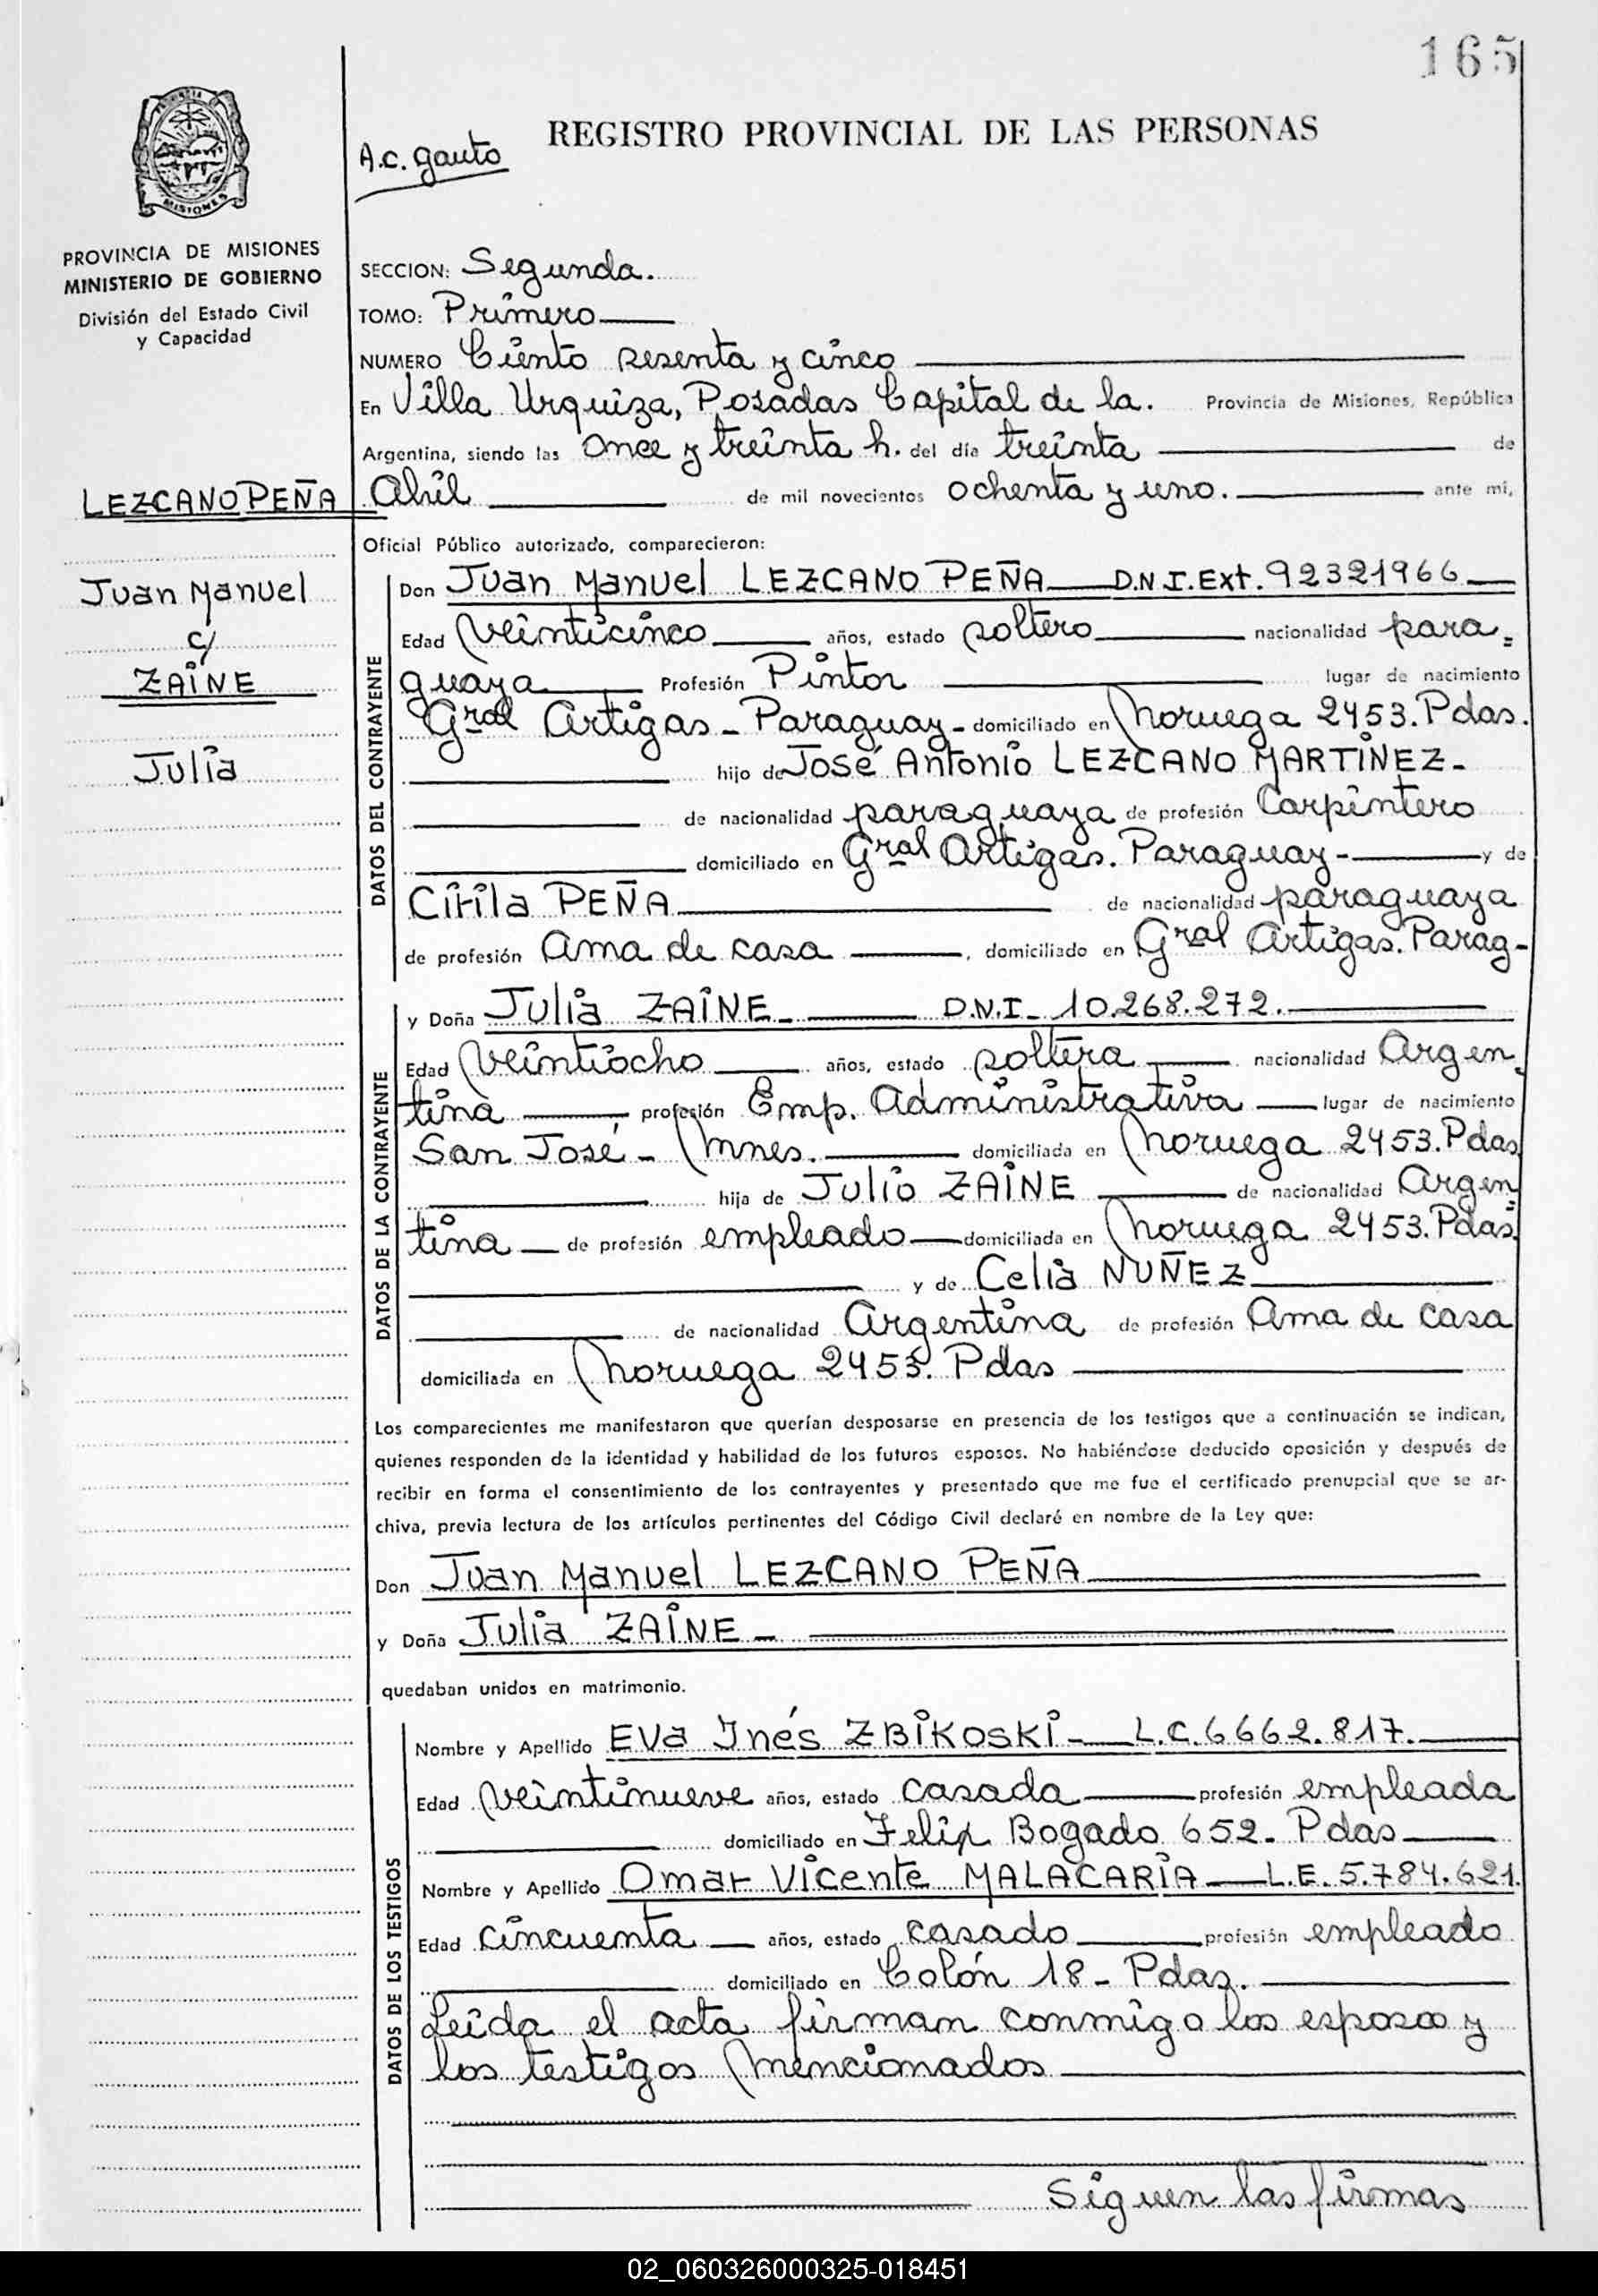 165
REGISTRO PROVINCIAL DE LAS PERSONAS
A.C. Gauto
PROVINCIA DE MISIONES
MINISTERIO DE GOBIERNO
División del Estado Civil
y Capacidad
MISIONES
SECCION: Segunda.
TOMO: Primero
NUMERO Ciento sesenta y cinco
En Villa Urquiza, Posadas Capital de la. Provincia de Misiones, República
Argentina, siendo las Once y treinta h. del día treinta de
Abril de mil novecientos ochenta y uno. ante mí,
Oficial Público autorizado, comparecieron:
LEZCANO PEÑA
Juan Manuel
c/
ZAINE
Julia
DATOS DEL CONTRAYENTE
Don Juan Manuel LEZCANO PEÑA D.N.I.Ext. 92321966
Edad veinticinco años, estado soltero nacionalidad para=
guaya Profesión Pintor lugar de nacimiento
Gral Artigas - Paraguay - domiciliado en Noruega 2453. Pdas.
hijo de José Antonio LEZCANO MARTINEZ-
de nacionalidad paraguaya de profesión Carpintero
domiciliado en Gral Artigas. Paraguay - y de
Cirila PEÑA de nacionalidad paraguaya
de profesión Ama de casa, domiciliado en Gral Artigas. Parag-
DATOS DE LA CONTRAYENTE
y Doña Julia ZAINE - D.N.I- 10.268.272.
Edad veintiocho años, estado soltera nacionalidad Argen=
tina profesión Emp. Administrativa lugar de nacimiento
San José - Mnes. domiciliada en Noruega 2453. Pdas
hija de Julio ZAINE de nacionalidad Argen=
tina de profesión empleado domiciliada en Noruega 2453. Pdas.
y de Celia NUÑEZ
de nacionalidad Argentina de profesión Ama de casa
domiciliada en Noruega 2453. Pdas
Los comparecientes me manifestaron que querían desposarse en presencia de los testigos que a continuación se indican,
quienes responden de la identidad y habilidad de los futuros esposos. No habiéndose deducido oposición y después de
recibir en forma el consentimiento de los contrayentes y presentado que me fue el certificado prenupcial que se ar-
chiva, previa lectura de los artículos pertinentes del Código Civil declaré en nombre de la Ley que:
Don Juan Manuel LEZCANO PEÑA
y Doña Julia ZAINE -
quedaban unidos en matrimonio.
DATOS DE LOS TESTIGOS
Nombre y Apellido Eva Inés ZBIKOSKI - L.C. 6662.817.
Edad veintinueve años, estado casada profesión empleada
domiciliado en Felix Bogado 652. Pdas
Nombre y Apellido Omar Vicente MALACARIA L.E. 5.784.621.
Edad cincuenta años, estado casado profesión empleado
domiciliado en Colón 18 - Pdas.
Leída el acta firman conmigo los esposos y
los testigos mencionados
Siguen las firmas
02_060326000325-018451